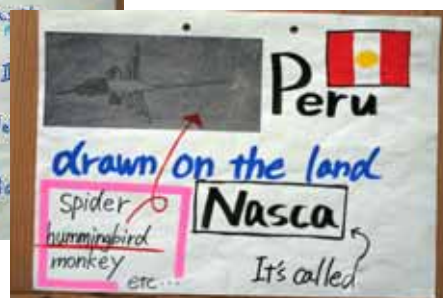 Peru
drawn on the land
spider
hummingbird
monkey
etc...
Nasca
It's called